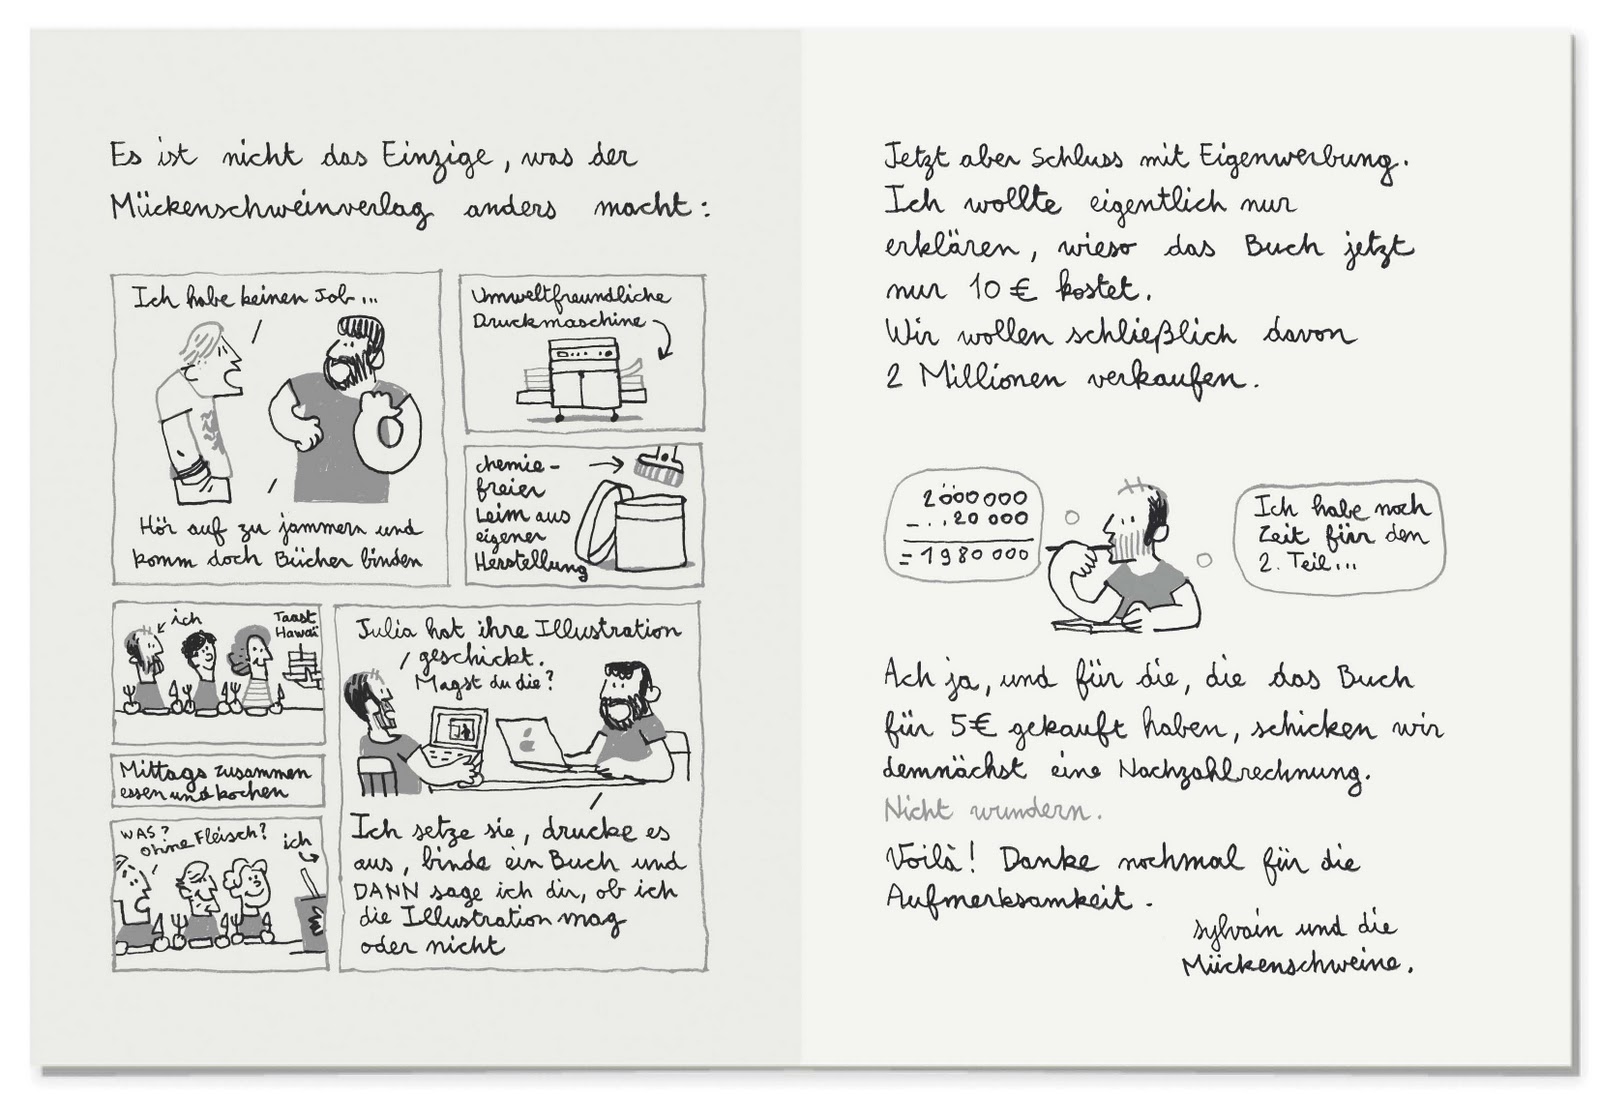 Es ist nicht das Einzige, was der
Mückenschweinverlag anders macht:
Ich habe keinen Job...
Hör auf zu jammern und
komm doch Bücher binden
Umweltfreundliche
Druckmaschine
chemie-
freier
Leim aus
eigener
Herstellung
ich
Taast
Hawaï
Mittags zusammen
essen und kochen
WAS?
ohne Fleisch?
ich
Julia hat ihre Illustration
geschickt.
Magst du die?
Ich setze sie, drucke es
aus, binde ein Buch und
DANN sage ich dir, ob ich
die Illustration mag
oder nicht
Jetzt aber Schluss mit Eigenwerbung.
Ich wollte eigentlich nur
erklären, wieso das Buch jetzt
nur 10 € kostet.
Wir wollen schließlich davon
2 Millionen verkaufen.
2000000
-...20 000
= 1980 000
Ich habe noch
Zeit für den
2. Teil...
Ach ja, und für die, die das Buch
für 5€ gekauft haben, schicken wir
demnächst eine Nachzahlrechnung.
Nicht wundern.
Voilà! Danke nochmal für die
Aufmerksamkeit.
sylvain und die
Mückenschweine.